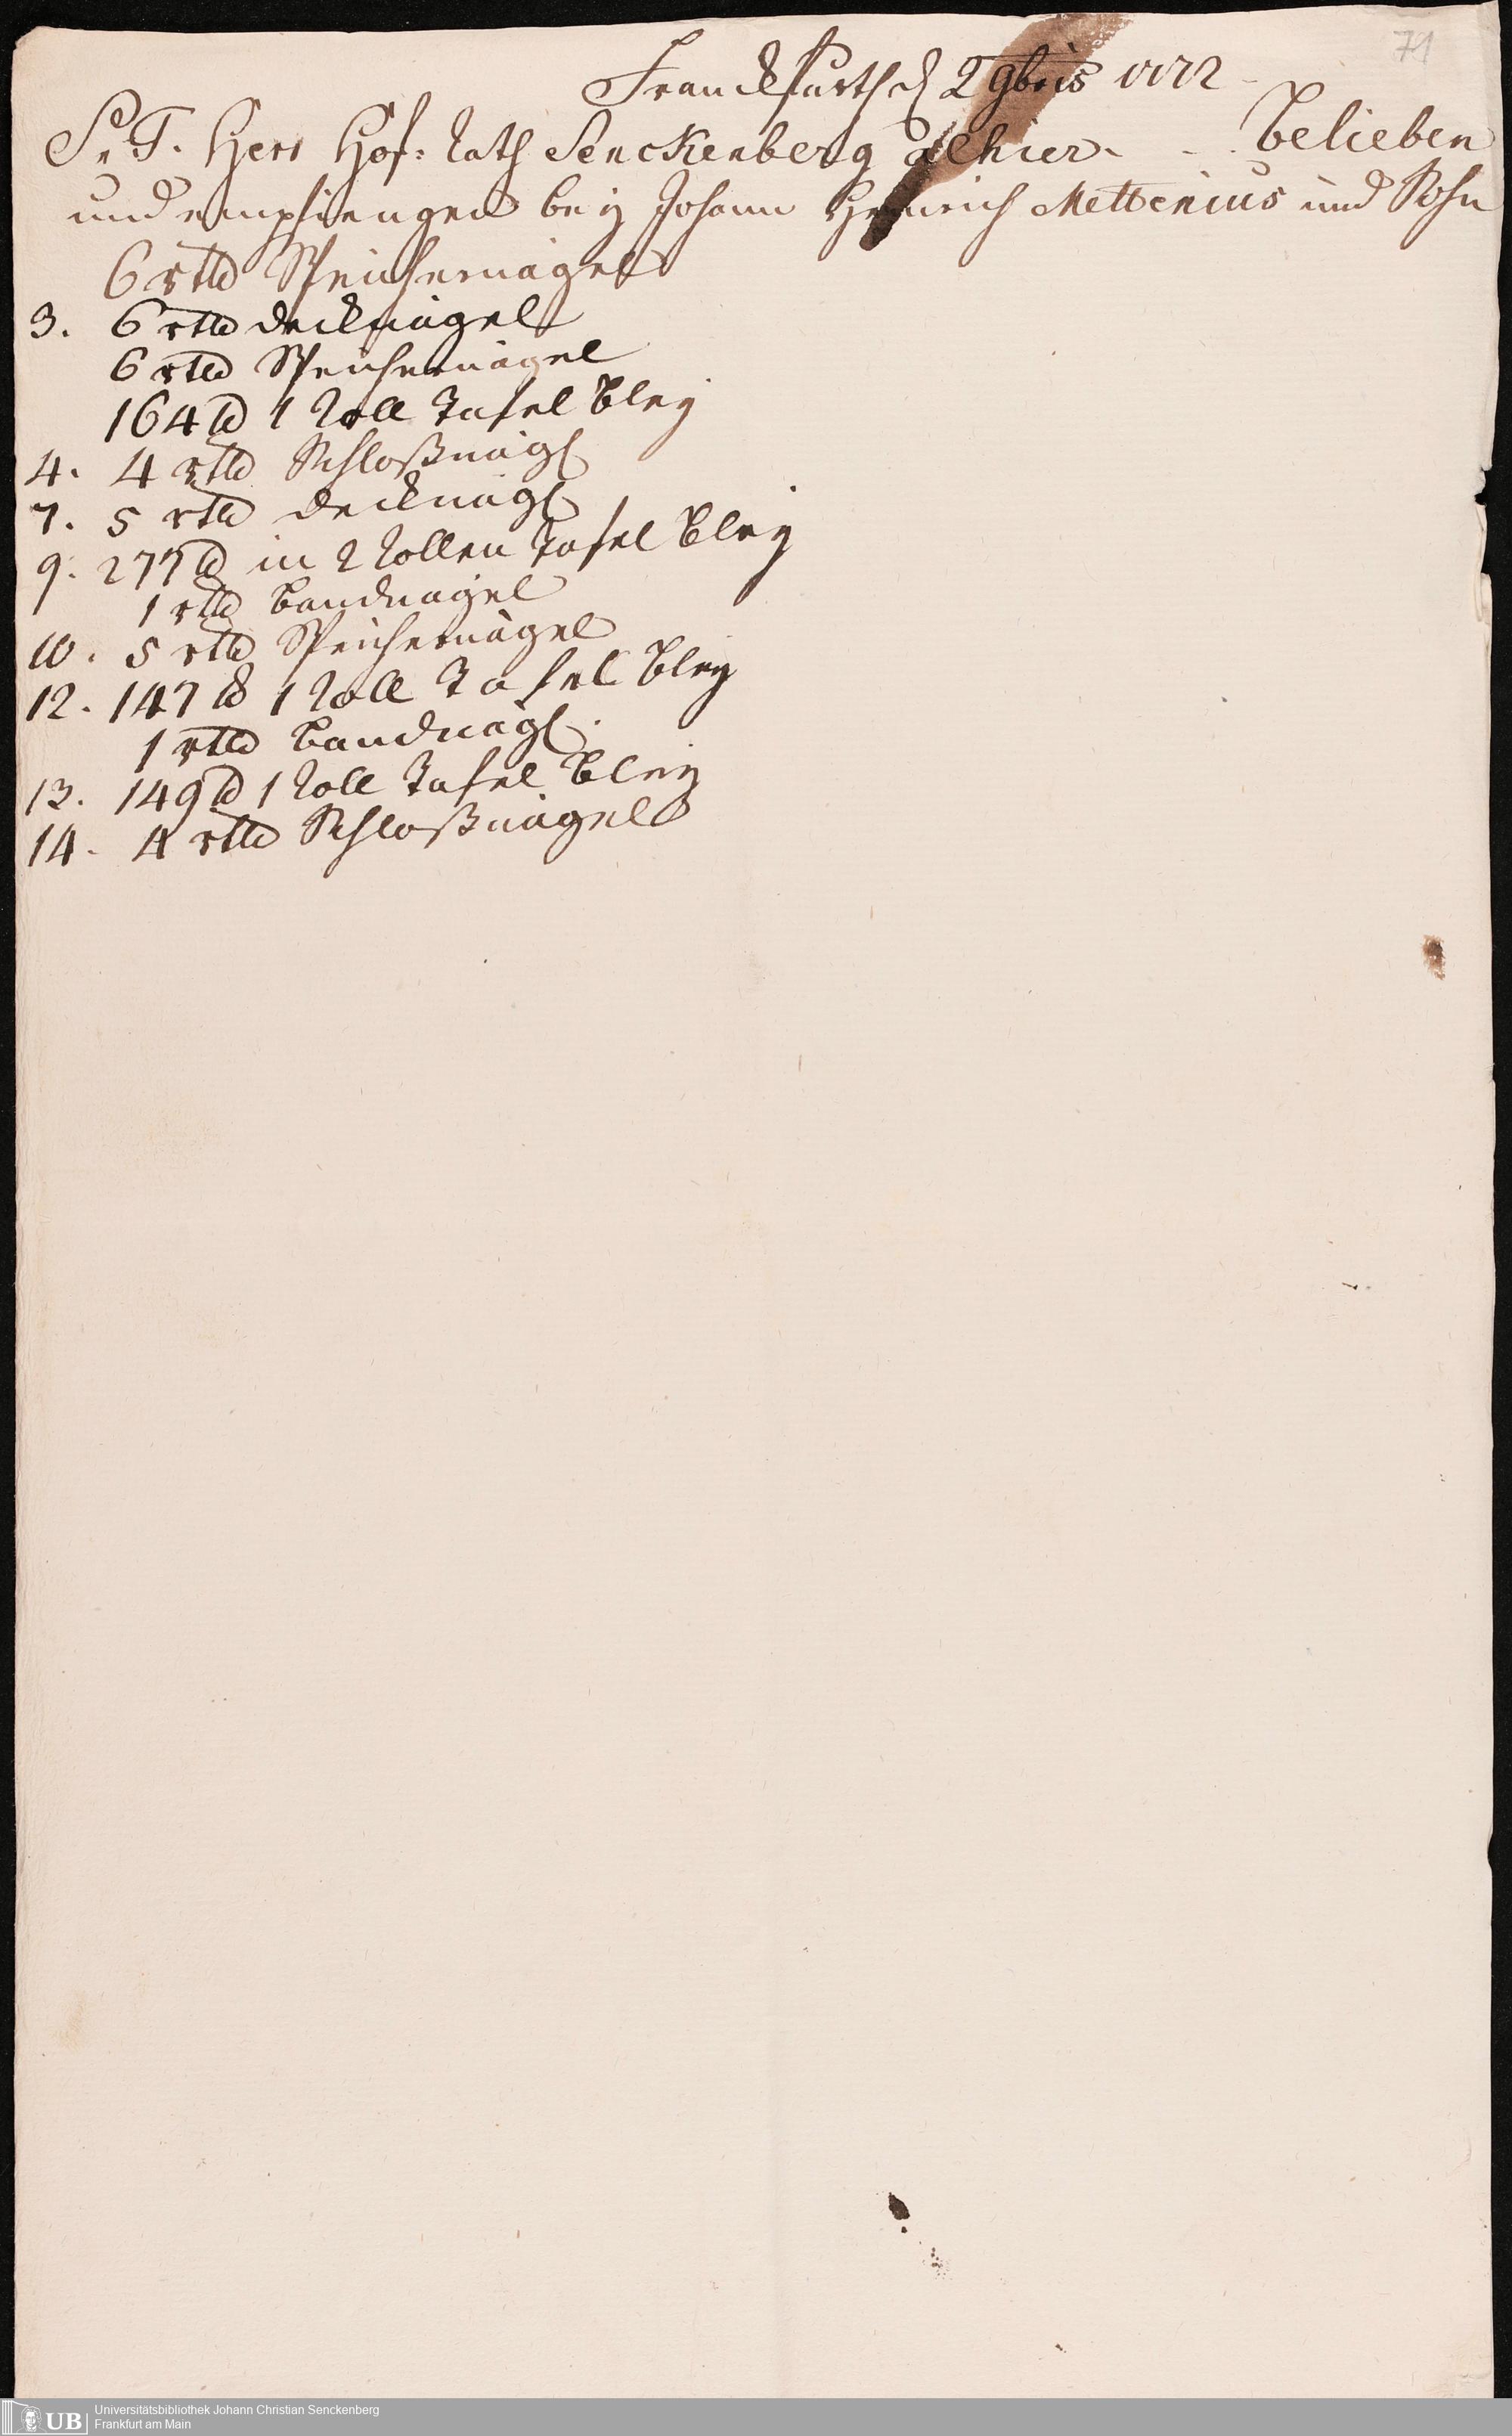 79
Franckfurth d 2 9bris 1772
S. T. Herr Hof: Rath Senckenberg alhier - - belieben
und empfiengen bey Johann Heinrich Mettenius und Sohn
6 rt℔ Speichernägel
3. 6 rt℔ Decknägel
6 rt℔ Speichernägel
164 ℔ 1 Roll Tafel Bley
4. 4 rt℔ Schloßnägl
7. 5 rt℔ Decknägl
9. 277 ℔ in 2 Rollen Tafel Bley
1 rt℔ Bandnägel
10. 5 rt℔ Speichernägel
12. 147 ℔ 1 Roll Tafel Bley
1 rt℔ Bandnägl.
13. 149 ℔ 1 Roll Tafel Bley
14. 4 rt℔ Schloßnägel
UB Universitätsbibliothek Johann Christian Senckenberg
Frankfurt am Main